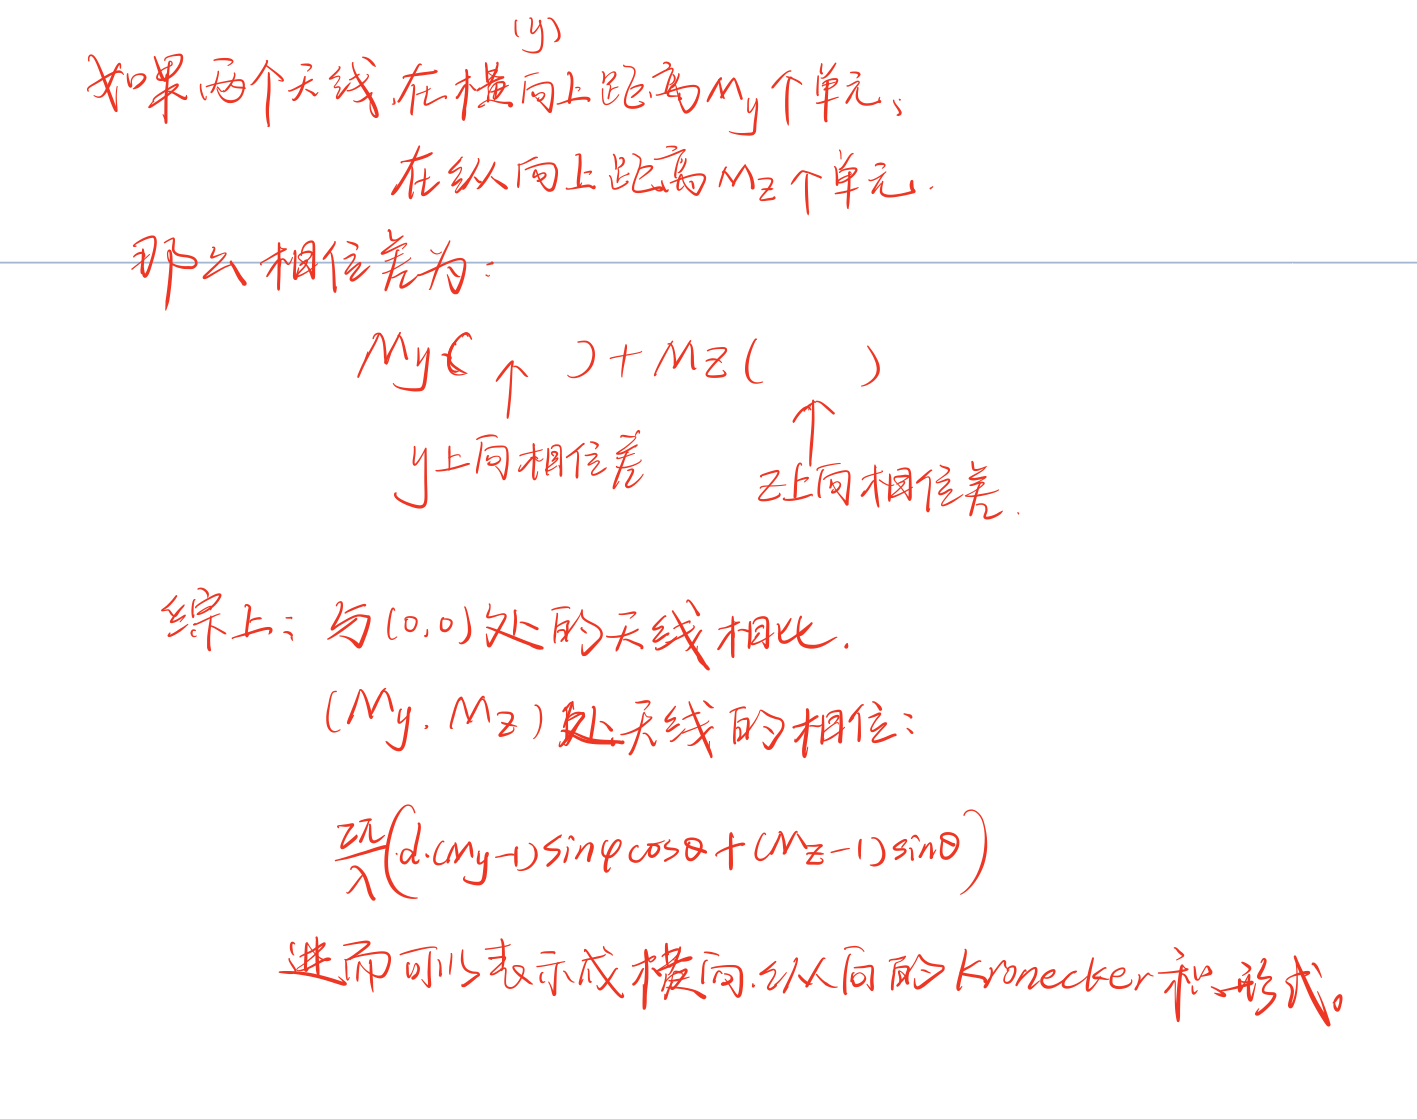 (y)
如果两个天线,在横向上距离My个单元、
在纵向上距离Mz个单元.
那么相位差为:
My( )+Mz( )
y上向相位差
z上向相位差.
综上: 与(0,0)处的天线相比.
(My, Mz)处天线的相位:
2π/λ(d·(My-1)sinφcosθ+(Mz-1)sinθ)
进而可以表示成横向.纵向的Kronecker积形式。